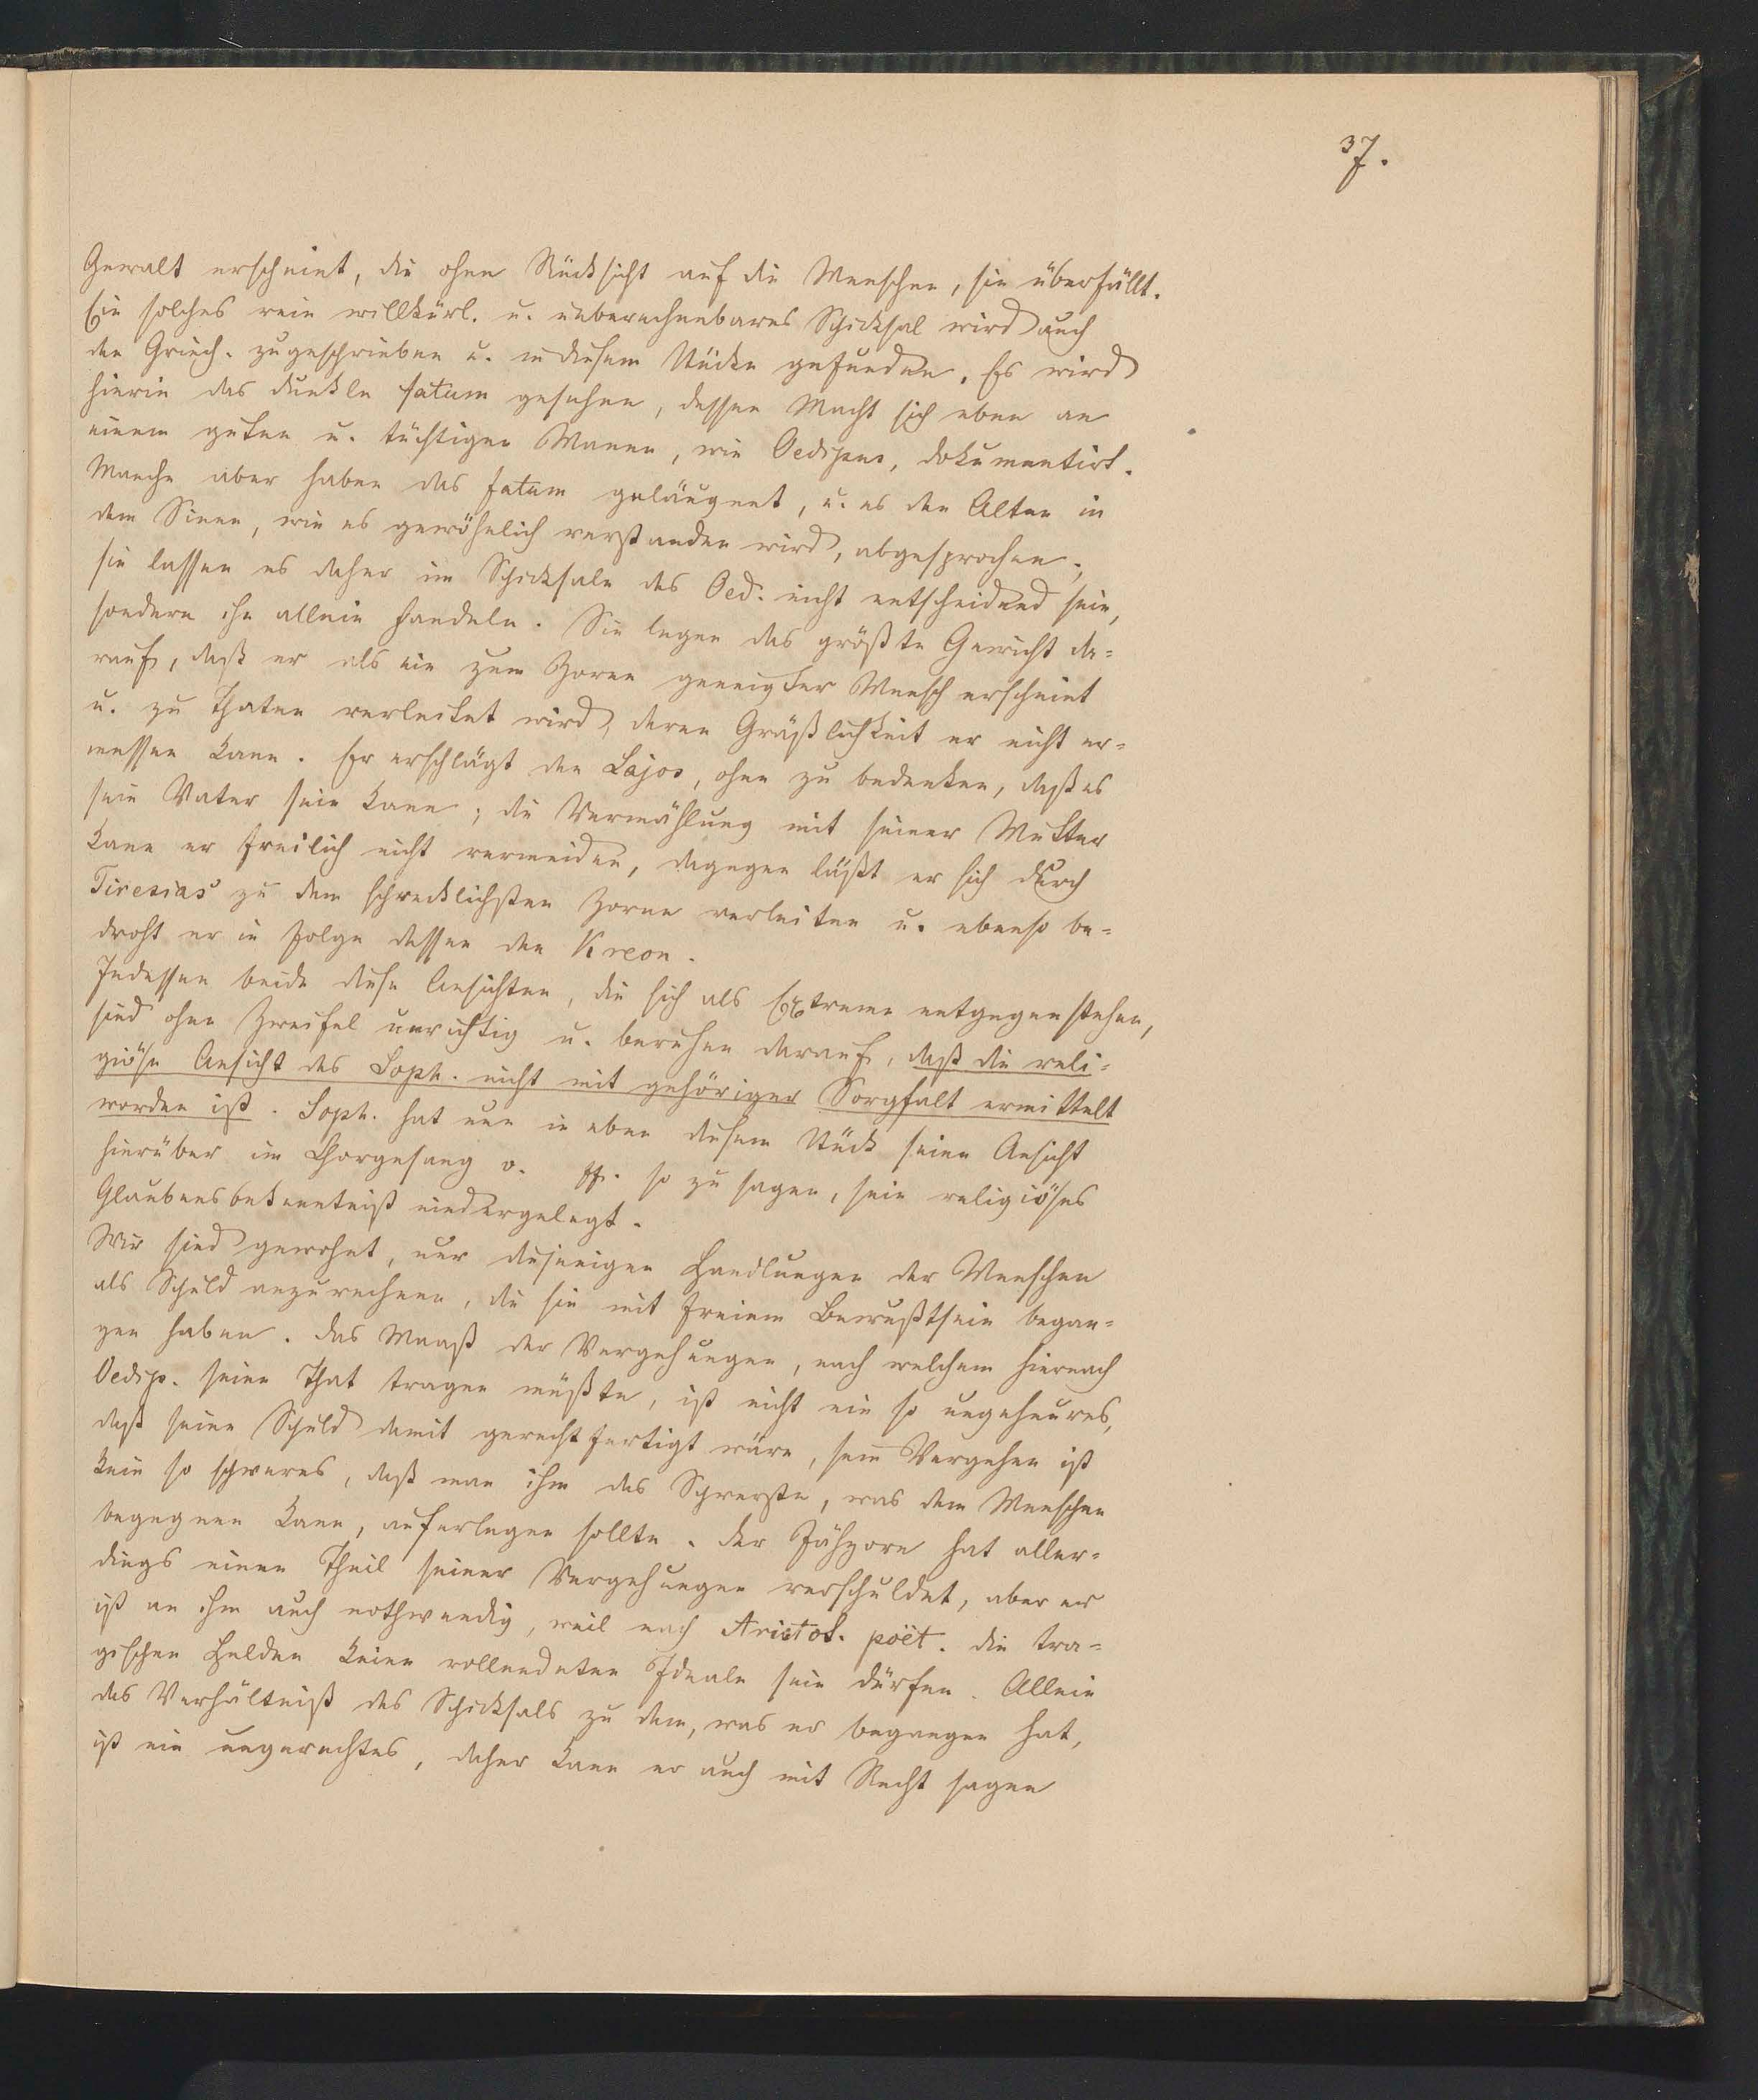 37.
Gewalt erscheint, die ohne Rücksicht auf die Menschen, sie überfällt.
Ein solches rein willkürl. u. unberechenbares Schicksal wird auch
den Griech. zugeschrieben u. in diesem Stücke gefunden. Es wird
hierin das dunkle fatum gesehen, dessen Macht sich eben an
einem guten u. tüchtigen Manne, wie Oedipus, dokumentirt.
Manche aber haben das fatum geläugnet, u. es den Alten in
dem Sinne, wie es gewöhnlich verstanden wird, abgesprochen;
sie lassen es daher im Schicksale des Oed. nicht entscheidend sein,
sondern ihn allein handeln. Sie legen das größte Gewicht da=
rauf, daß er als ein zum Zorne geneigter Mensch erscheint
u. zu Thaten verleitet wird, deren Gräßlichkeit er nicht er=
messen kann. Er erschlägt den Lajos, ohne zu bedenken, daß es
sein Vater sein kann; die Vermählung mit seiner Mutter
kann er freilich nicht vermeiden, dagegen läßt er sich durch
Tiresias zu dem schrecklichsten Zorne verleiten u. ebenso be=
droht er in Folge dessen den Kreon.
Indessen beide diese Ansichten, die sich als Extreme entgegenstehen,
sind ohne Zweifel unrichtig u. beruhen darauf, daß die reli=
giöse Ansicht des Soph. nicht mit gehöriger Sorgfalt ermittelt
worden ist. Soph. hat nun in eben diesem Stück seine Ansicht
hierüber im Chorgesang v. ff. so zu sagen, sein religiöses
Glaubensbekenntniß niedergelegt.
Wir sind gewohnt, nur diejenigen Handlungen der Menschen
als Schuld anzurechnen, die sie mit freiem Bewußtsein began=
gen haben. Das Maaß der Vergehungen, nach welchem hiernach
Oedip. seine That tragen müßte, ist nicht ein so ungeheures,
daß seine Schuld damit gerechtfertigt wäre, sein Vergehen ist
kein so schweres, daß man ihm das Schwerste, was dem Menschen
begegnen kann, auferlegen sollte. Der Jähzorn hat aller=
dings einen Theil seiner Vergehungen verschuldet, aber er
ist an ihm auch nothwendig, weil nach Aristot. poët. die tra=
gischen Helden keine vollendeten Ideale sein dürfen. Allein
das Verhältniß des Schicksals zu dem, was er begangen hat,
ist ein ungerechtes, daher kann er auch mit Recht sagen